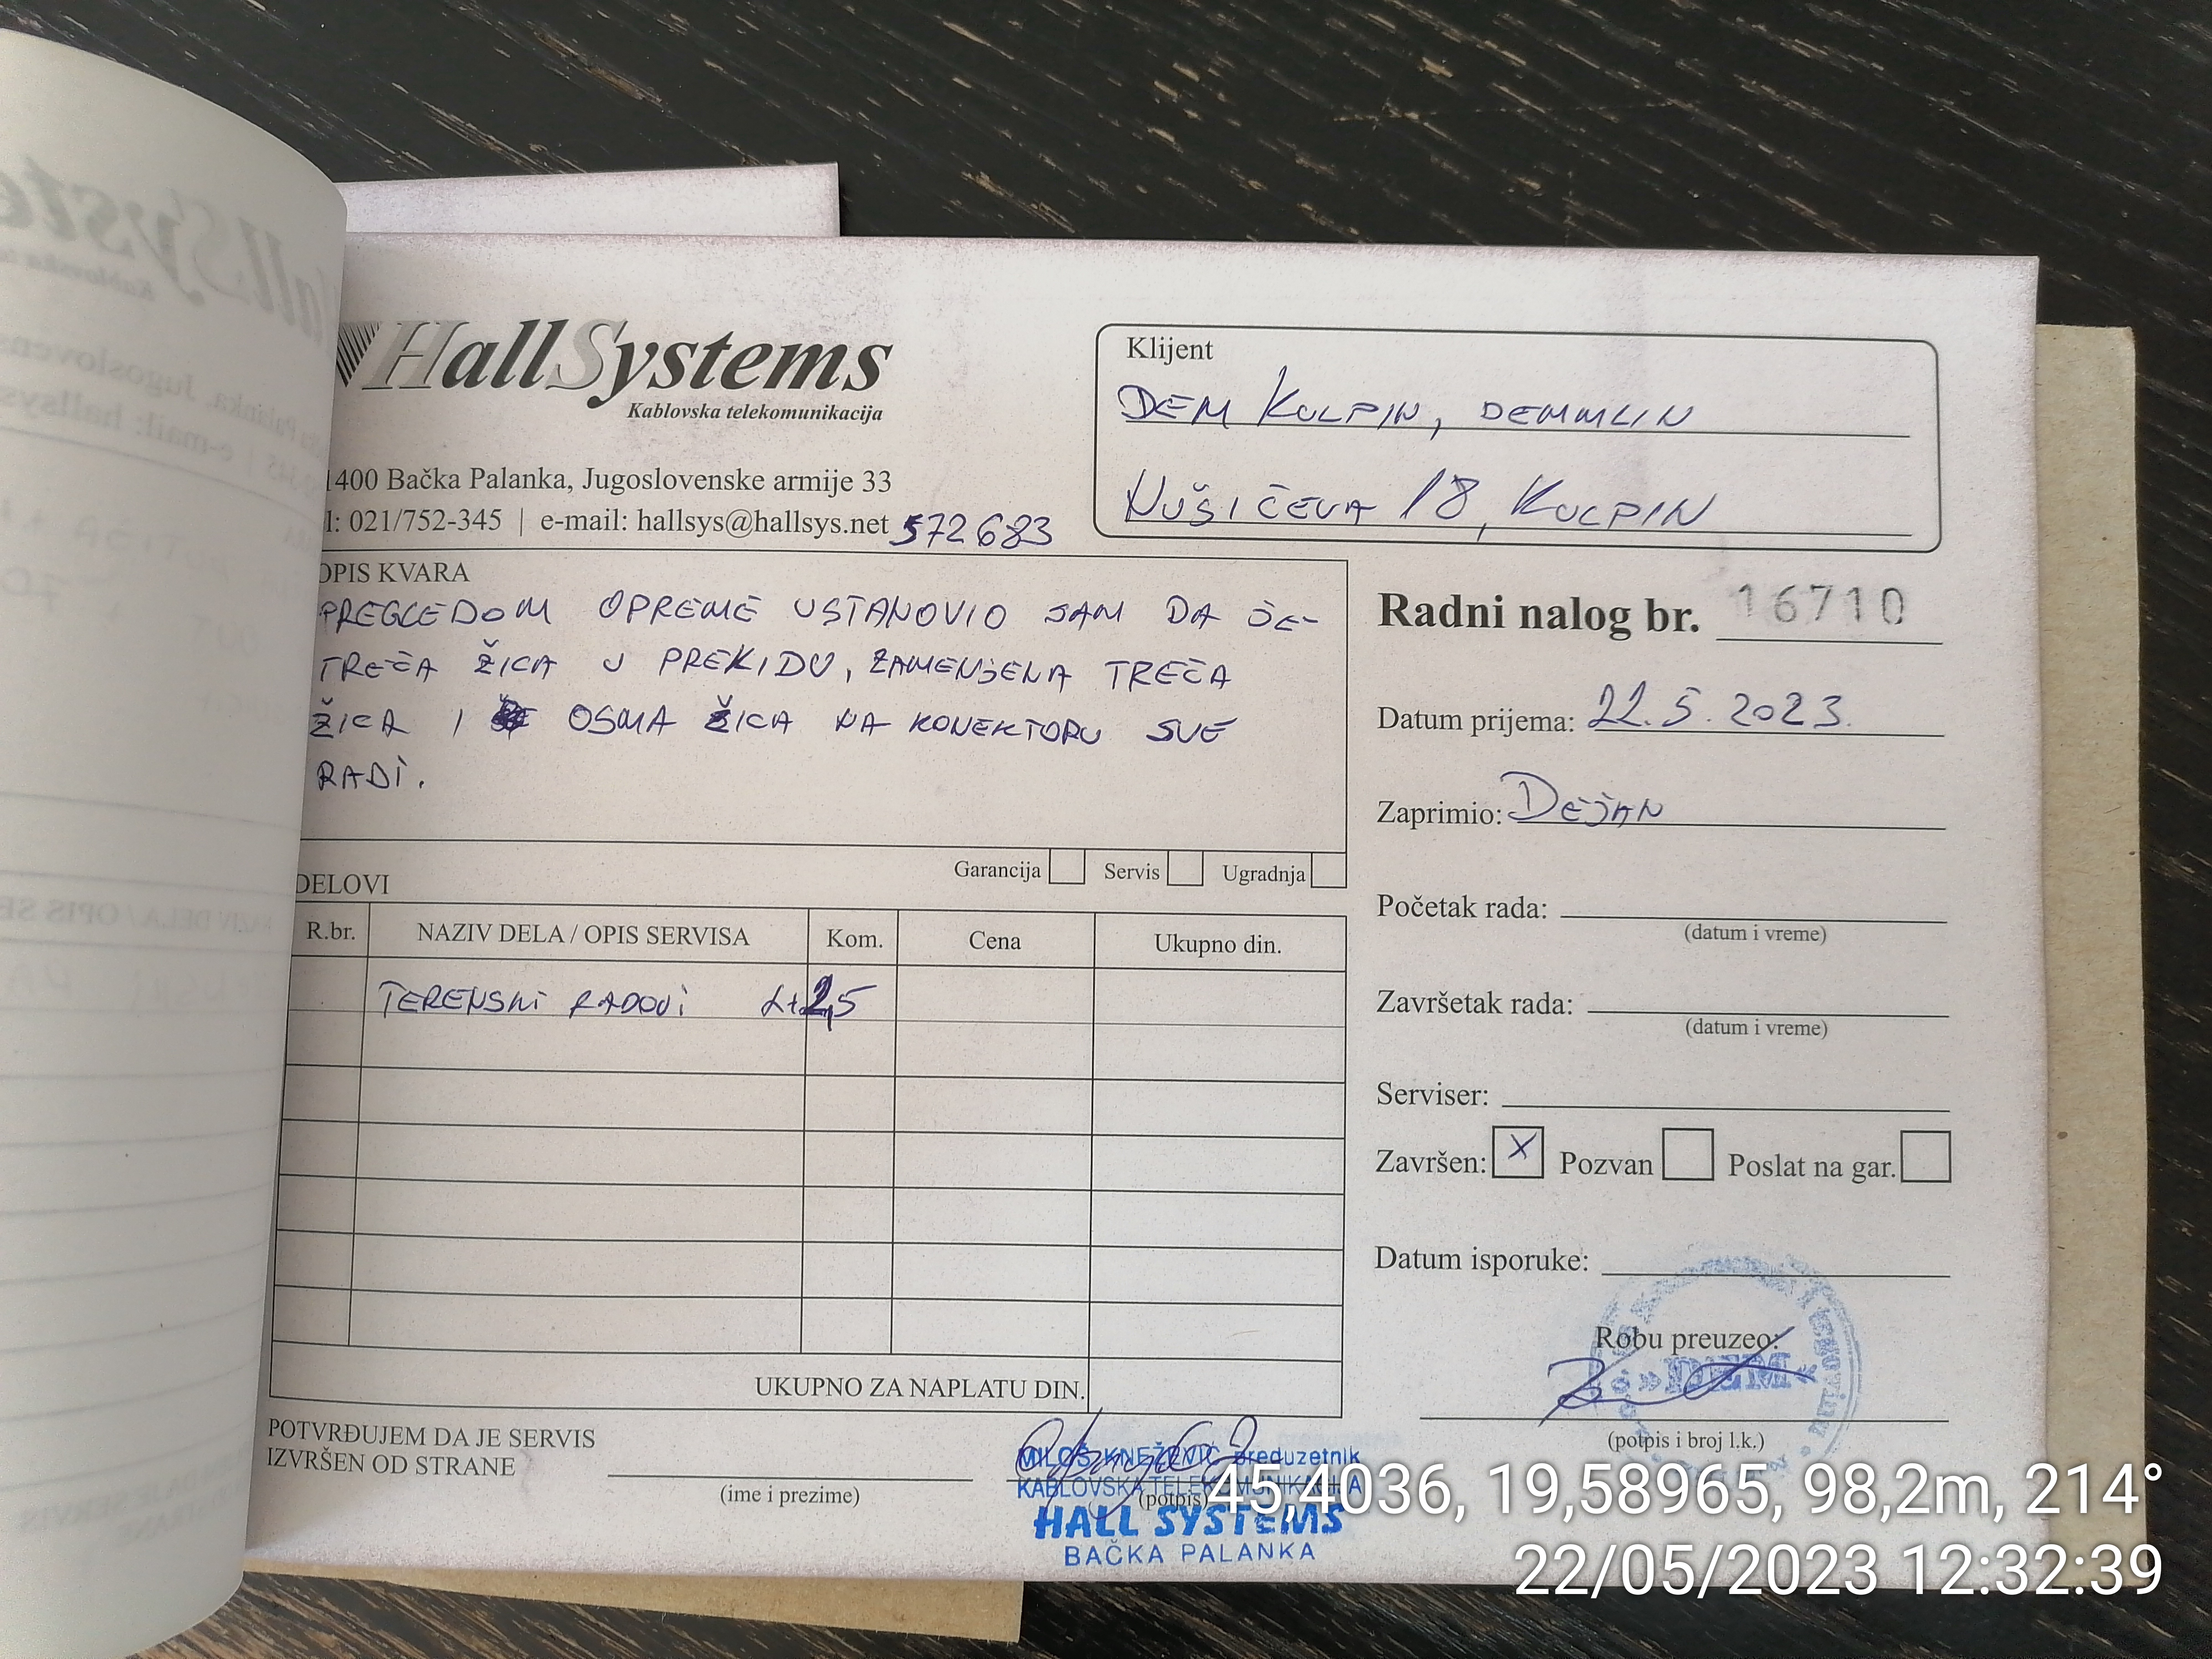 HallSystems
Kablovska telekomunikacija
1400 Bačka Palanka, Jugoslovenske armije 33
l: 021/752-345 | e-mail: hallsys@hallsys.net
572683
Klijent
DEM KULPIN, DEMMLIN
NUŠIĆEVA 18, KULPIN
OPIS KVARA
PREGLEDOM OPREME USTANOVIO SAM DA JE-
TREĆA ŽICA U PREKIDU, ZAMENJENA TREĆA
ŽICA I OSMA ŽICA NA KONEKTORU SVE
RADI.
Garancija Servis Ugradnja
DELOVI
R.br. NAZIV DELA / OPIS SERVISA Kom. Cena Ukupno din.
TERENSKI RADOVI 2,5
UKUPNO ZA NAPLATU DIN.
POTVRĐUJEM DA JE SERVIS
IZVRŠEN OD STRANE
(ime i prezime)
(potpis)
MILOŠ KNEŽEVIĆ preduzetnik
KABLOVSKA TELEKOMUNIKACIJA
HALL SYSTEMS
BAČKA PALANKA
Radni nalog br. 16710
Datum prijema: 22.5.2023.
Zaprimio: DEJAN
Početak rada:
(datum i vreme)
Završetak rada:
(datum i vreme)
Serviser:
Završen: X Pozvan Poslat na gar.
Datum isporuke:
Robu preuzeo:
»DEM«
(potpis i broj l.k.)
45,4036, 19,58965, 98,2m, 214°
22/05/2023 12:32:39